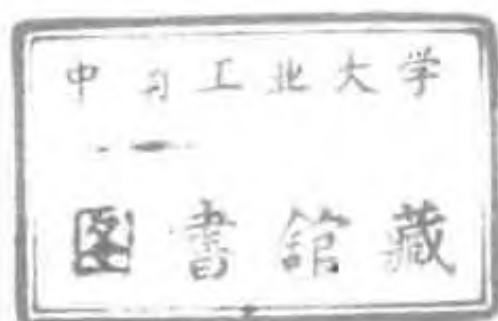 中 工业大学
图書館藏